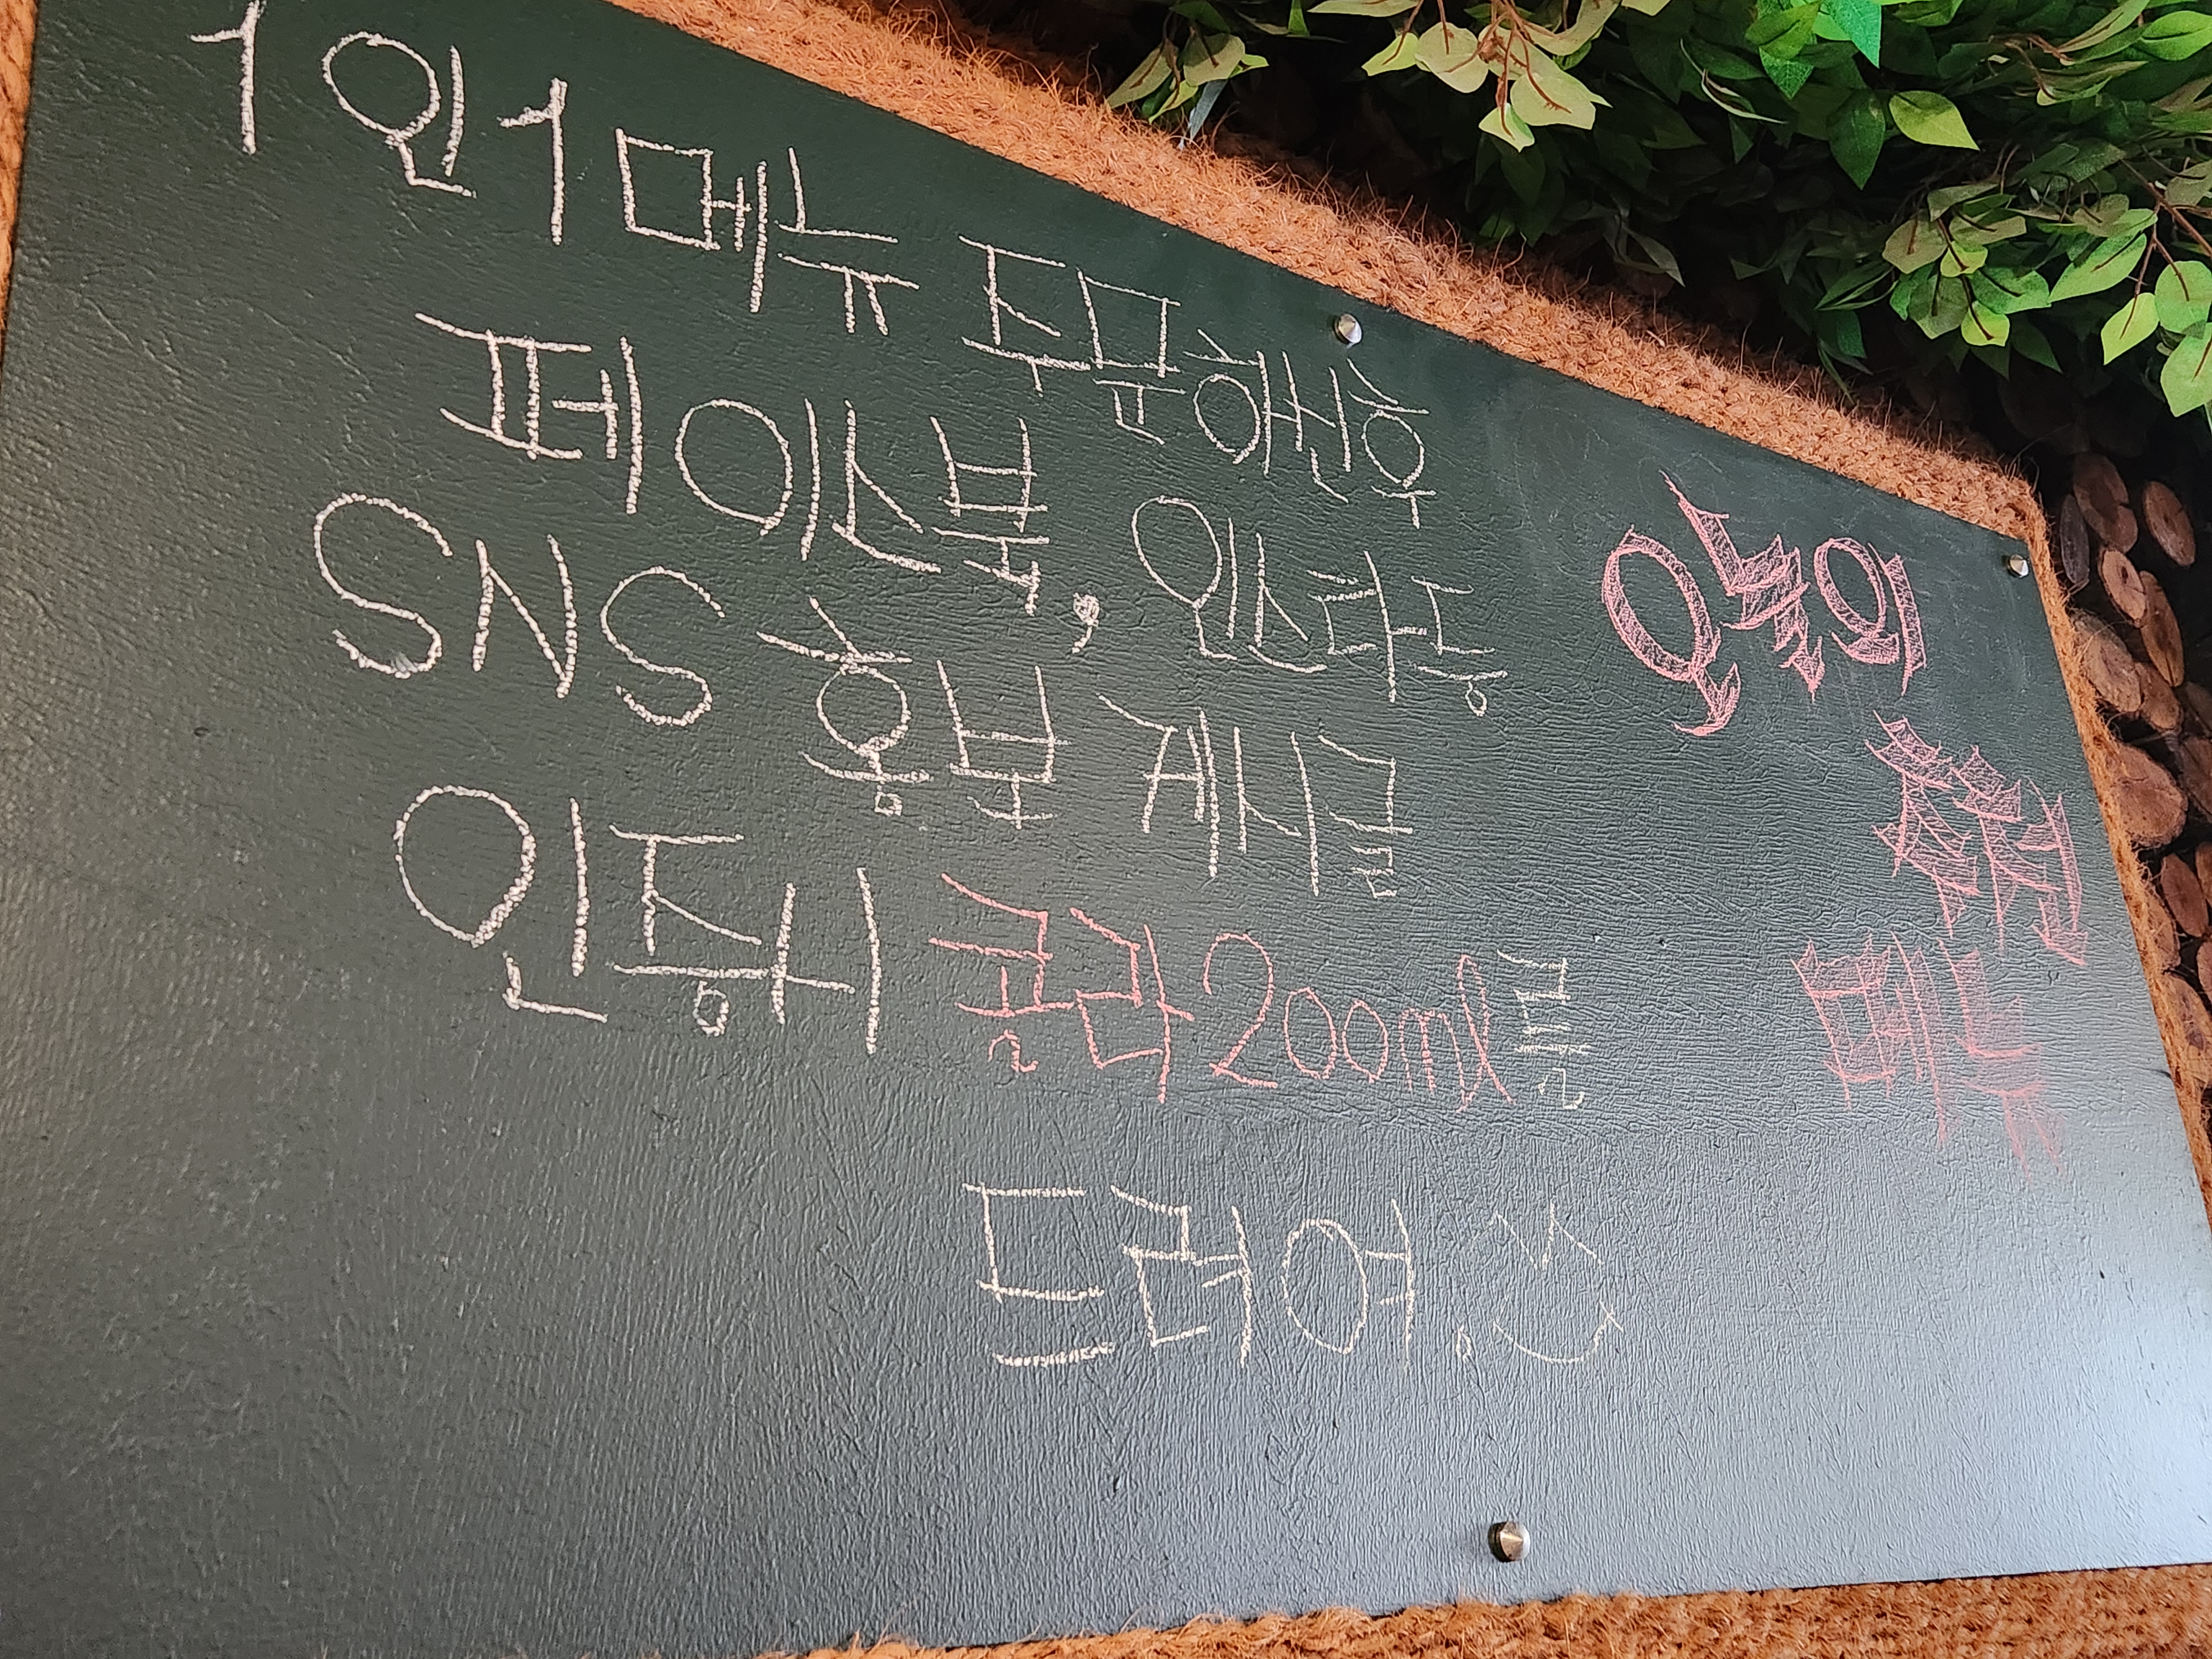 1인 1메뉴 주문하신 후
페이스북, 인스타 등
SNS 홍보 게시글
인증시 콜라 200ml를
드려여.
오늘의
추천
메뉴